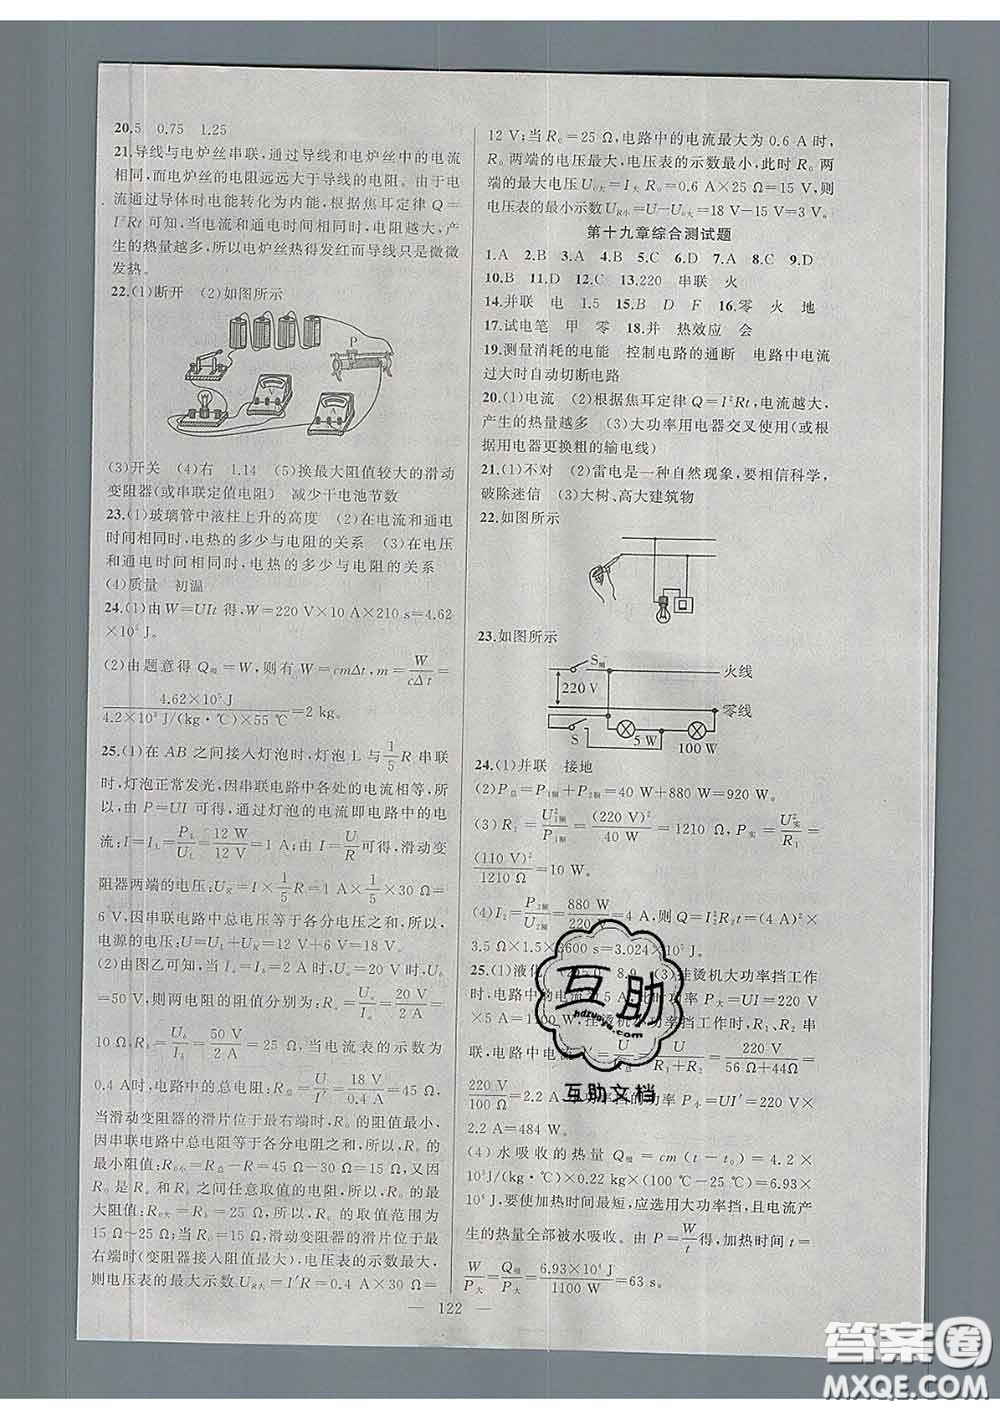 20.5　0.75　1.25
21.导线与电炉丝串联,通过导线和电炉丝中的电流
相同,而电炉丝的电阻远远大于导线的电阻。由于电
流通过导体时电能转化为内能,根据焦耳定律 Q=
I²Rt 可知,当电流和通电时间相同时,电阻越大,产
生的热量越多,所以电炉丝热得发红而导线只是微微
发热。
22.(1)断开　(2)如图所示
P
(3)开关　(4)右　1.14　(5)换最大阻值较大的滑动
变阻器(或串联定值电阻)　减少干电池节数
23.(1)玻璃管中液柱上升的高度　(2)在电流和通电
时间相同时,电热的多少与电阻的关系　(3)在电压
和通电时间相同时,电热的多少与电阻的关系
(4)质量　初温
24.(1)由 W=UIt 得,W=220 V×10 A×210 s=4.62
×10⁵ J。
(2)由题意得 Q吸=W,则有 W=cmΔt,m=W/cΔt=
4.62×10⁵ J/4.2×10³ J/(kg·℃)×55 ℃=2 kg。
25.(1)在 AB 之间接入灯泡时,灯泡 L 与1/5R 串联
时,灯泡正常发光,因串联电路中各处的电流相等,所
以,由 P=UI 可得,通过灯泡的电流即电路中的电
流:I=I_L=P_L/U_L=12 W/12 V=1 A;由 I=U/R可得,滑动变
阻器两端的电压:U_R=I×1/5R=1 A×1/5×30 Ω=
6 V,因串联电路中总电压等于各分电压之和,所以,
电源的电压:U=U_L+U_R=12 V+6 V=18 V。
(2)由图乙可知,当 I_a=I_b=2 A时,U_a=20 V时,U_b
=50 V,则两电阻的阻值分别为:R_a=U_a/I_a=20 V/2 A=
10 Ω,R_b=U_b/I_b=50 V/2 A=25 Ω,当电流表的示数为
0.4 A时,电路中的总电阻:R总=U/I′=18 V/0.4 A=45 Ω,
当滑动变阻器的滑片位于最右端时,R₀ 的阻值最小,
因串联电路中总电阻等于各分电阻之和,所以,R₀ 的
最小阻值:R₀小=R总-R滑=45 Ω-30 Ω=15 Ω,又因
R₀ 是 R_a 和 R_b 之间任意取值的电阻,所以,R₀ 的最
大阻值:R₀大=R_b=25 Ω,所以,R₀ 的取值范围为
15 Ω~25 Ω;当 R₀=15 Ω,滑动变阻器的滑片位于最
右端时(变阻器接入阻值最大),电压表的示数最大,
则电压表的最大示数 U_R大=I′R=0.4 A×30 Ω=
12 V;当 R₀=25 Ω,电路中的电流最大为 0.6 A 时,
R₀ 两端的电压最大,电压表的示数最小,此时 R₀ 两
端的最大电压 U₀大=I大 R₀=0.6 A×25 Ω=15 V,则
电压表的最小示数 U_R小=U-U₀大=18 V-15 V=3 V。
第十九章综合测试题
1.A　2.B　3.A　4.B　5.C　6.D　7.A　8.C　9.D
10.B　11.D　12.C　13.220　串联　火
14.并联　电　1.5　15.B　D　F　16.零　火　地
17.试电笔　甲　零　18.并　热效应　会
19.测量消耗的电能　控制电路的通断　电路中电流
过大时自动切断电路
20.(1)电流　(2)根据焦耳定律 Q=I²Rt,电流越大,
产生的热量越多　(3)大功率用电器交叉使用(或根
据用电器更换粗的输电线)
21.(1)不对　(2)雷电是一种自然现象,要相信科学,
破除迷信　(3)大树、高大建筑物
22.如图所示
23.如图所示
火线
220 V
零线
S
5 W
100 W
24.(1)并联　接地
(2)P总=P₁额+P₂额=40 W+880 W=920 W。
(3)R₁=U²额/P₁额=(220 V)²/40 W=1210 Ω,P实=U²实/R₁=
(110 V)²/1210 Ω=10 W。
(4)I₂=P₂额/U额=880 W/220 V=4 A,则 Q=I₂²R₂t=(4 A)²×
3.5 Ω×1.5×3600 s=3.024×10⁵ J。
25.(1)液化　8.9　(3)挂烫机大功率挡工作
时,电路中的电流 A,此时功率 P大=UI=220 V
×5 A=1100 W,挂烫机 功率挡工作时,R₁、R₂ 串
联,电路中电流 U/R₁+R₂=220 V/56 Ω+44 Ω=
220 V/100 Ω=2.2 A, 功率挡的功率 P小=UI′=220 V×
2.2 A=484 W。
(4)水吸收的热量 Q吸=cm(t-t₀)=4.2×
10³ J/(kg·℃)×0.22 kg×(100 ℃-25 ℃)=6.93×
10⁴ J,要使加热时间最短,应选用大功率挡,且电流产
生的热量全部被水吸收。由 P=W/t得,加热时间 t=
W/P大=Q吸/P大=6.93×10⁴ J/1100 W=63 s。
— 122 —
互助
互助文档
答案圈
MXQE.COM